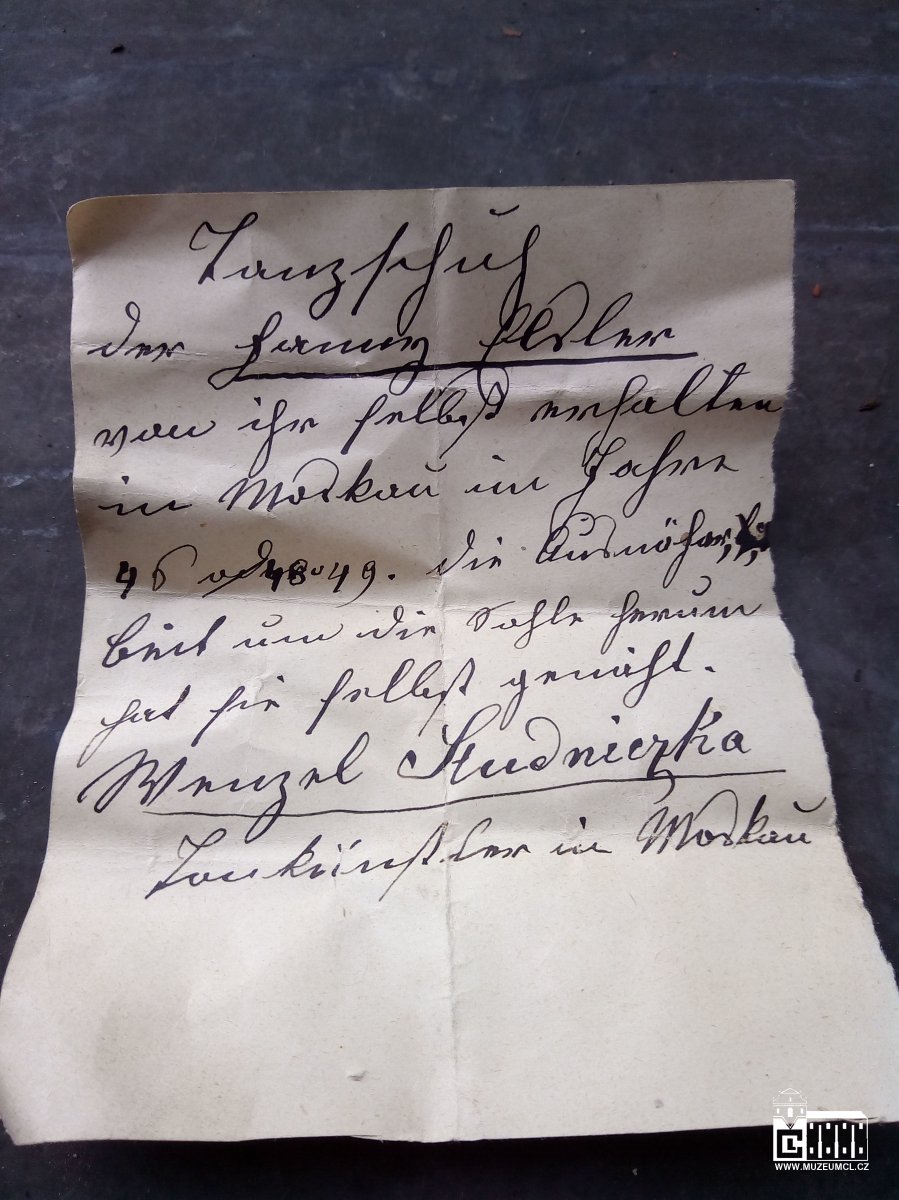 Tanzschuh
der Fanny Elsler
von ihr selbst erhalten
in Moskau im Jahre
48 od 49. die Ausnähar,,
beit um die Sohle herum
hat sie selbst genäht.
Wenzel Studniczka
Tonkünstler in Moskau
WWW.MUZEUMCL.CZ